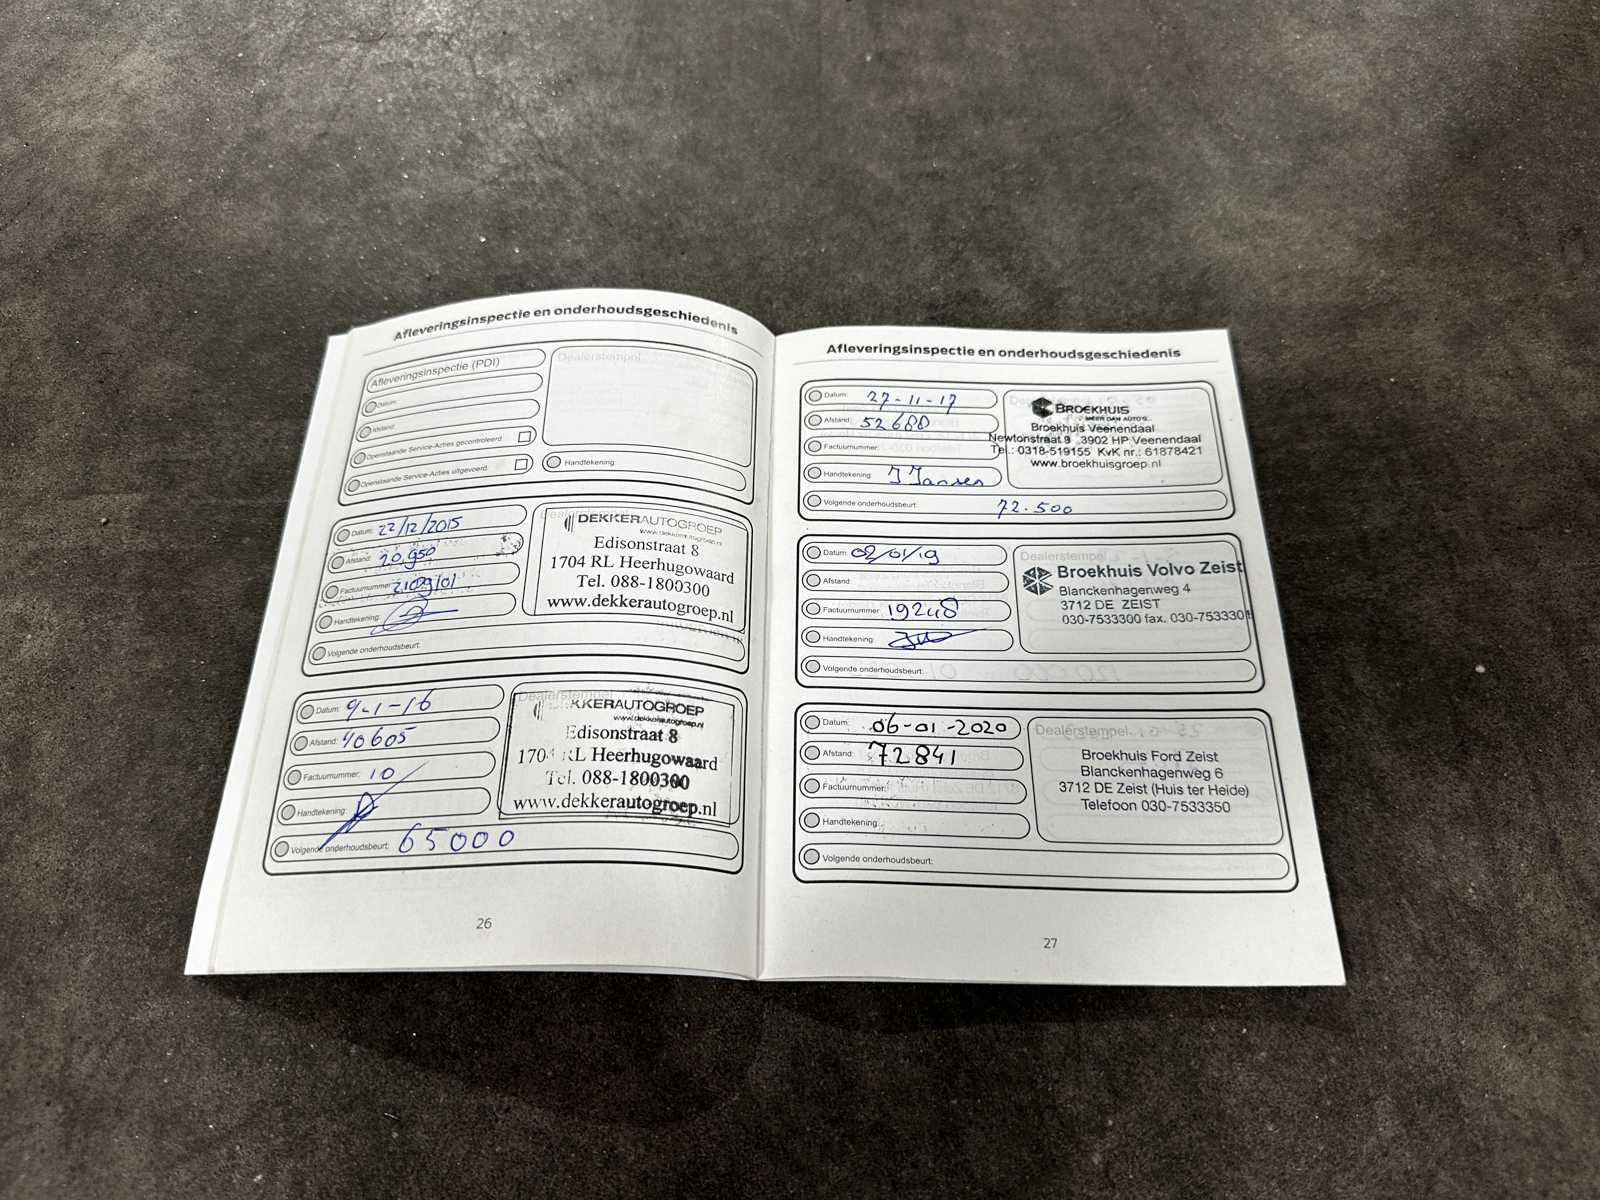 Afleveringsinspectie en onderhoudsgeschiedenis
Afleveringsinspectie (PDI)
Datum:
Afstand:
Openstaande Service-Acties gecontroleerd:
Openstaande Service-Acties uitgevoerd:
Dealerstempel
Handtekening:
Datum: 22/12/2015
Afstand: 20.950
Factuurnummer:
Handtekening:
Volgende onderhoudsbeurt:
Dealerstempel
DEKKERAUTOGROEP
www.dekkerautogroep.nl
Edisonstraat 8
1704 RL Heerhugowaard
Tel. 088-1800300
www.dekkerautogroep.nl
Datum: 9-1-16
Afstand: 40605
Factuurnummer: 10
Handtekening:
Volgende onderhoudsbeurt: 65000
Dealerstempel
KKERAUTOGROEP
www.dekkerautogroep.nl
Edisonstraat 8
1704 RL Heerhugowaard
Tel. 088-1800300
www.dekkerautogroep.nl
26
Afleveringsinspectie en onderhoudsgeschiedenis
Datum: 27-11-17
Afstand: 52688
Factuurnummer:
Handtekening: J Jansen
Volgende onderhoudsbeurt: 72.500
BROEKHUIS
MEER DAN AUTO'S
Broekhuis Veenendaal
Newtonstraat 9 3902 HP Veenendaal
Tel.: 0318-519155 KvK nr.: 61878421
www.broekhuisgroep.nl
Datum: 02/01/19
Afstand:
Factuurnummer: 19248
Handtekening:
Volgende onderhoudsbeurt:
Dealerstempel
Broekhuis Volvo Zeist
Blanckenhagenweg 4
3712 DE ZEIST
030-7533300 fax. 030-7533301
Datum: 06-01-2020
Afstand: 72841
Factuurnummer:
Handtekening:
Volgende onderhoudsbeurt:
Dealerstempel
Broekhuis Ford Zeist
Blanckenhagenweg 6
3712 DE Zeist (Huis ter Heide)
Telefoon 030-7533350
27